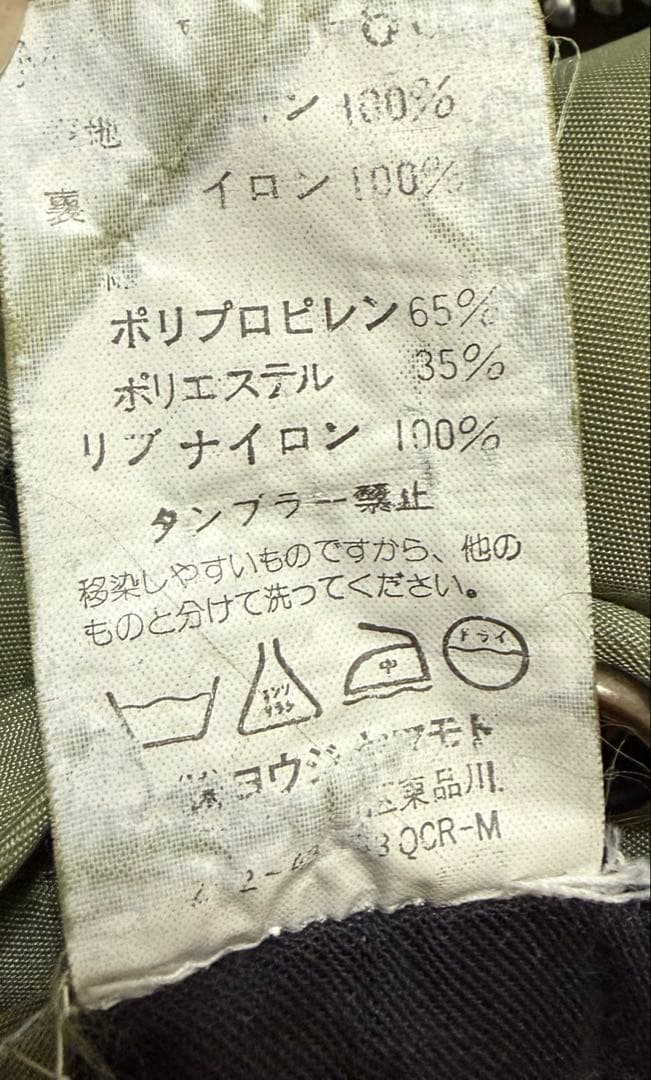 地 ン 100%
裏 イロン 100%
ポリプロピレン 65%
ポリエステル 35%
リブ ナイロン 100%
タンブラー禁止
移染しやすいものですから、他の
ものと分けて洗ってください。
中
ドライ
ヨウジ モト
東品川.
QCR-M